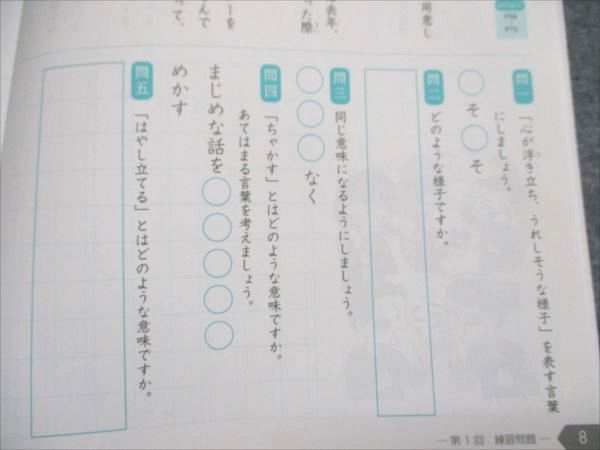 用意し
去年、
った際
ーを
んで
って、
問一
「心が浮き立ち、うれしそうな様子」を表す言葉
にしましょう。
○そ○そ
問二
どのような様子ですか。
問三
同じ意味になるようにしましょう。
○○○なく
問四
「ちゃかす」とはどのような意味ですか。
あてはまる言葉を考えましょう。
まじめな話を○○○○○
めかす
問五
「はやし立てる」とはどのような意味ですか。
―第1回 練習問題―
8